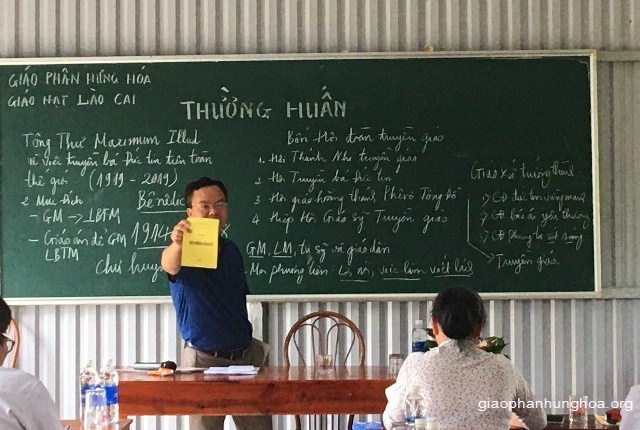 GIÁO PHẬN HƯNG HÓA
GIÁO HẠT LÀO CAI
THƯỜNG HUẤN
Tông Thư Maximum Illud
về việc truyền bá Đức tin trên toàn
thế giới (1919 - 2019)
2 Mục đích
- GM → LBTM
- Giáo án để GM
LBTM
1914
Bốn Hội đoàn truyền giáo
1. Hội Thánh Nhi truyền giáo
2. Hội Truyền bá Đức tin
3. Hội giáo hoàng thánh Phêrô Tông đồ
4. Hiệp Hội Giáo sỹ Truyền giáo
GM, LM, tu sỹ và giáo dân
Mọi phương tiện
việc làm
Giáo xứ trưởng thành
CĐ đức tin
CĐ bác ái yêu thương
CĐ Phụng tự sốt sắng
Truyền giáo
giaophanhunghoa.org